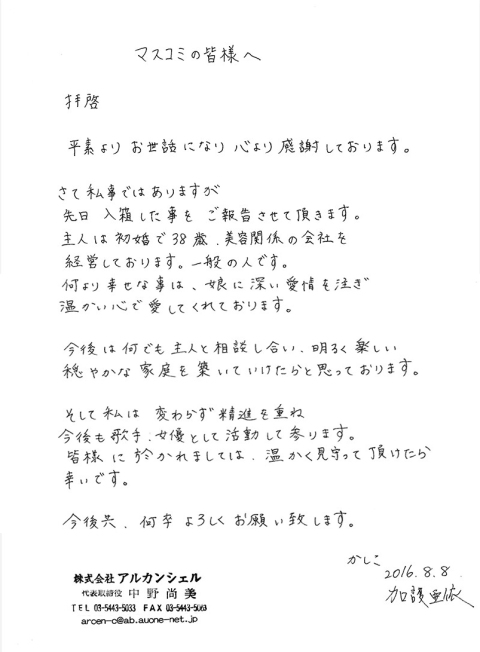 マスコミの皆様へ
拝啓
平素より お世話になり 心より 感謝しております。
さて私事ではありますが
先日 入籍した事を ご報告させて頂きます。
主人は初婚で38歳、美容関係の会社を
経営しております。一般の人です。
何より幸せな事は、娘に深い愛情を注ぎ
温かい心で愛してくれております。
今後は何でも主人と相談し合い、明るく楽しい
穏やかな家庭を築いていけたらと思っております。
そして私は 変わらず精進を重ね
今後も歌手、女優として活動して参ります。
皆様に於かれましては、温かく見守って頂けたら
幸いです。
今後共、何卒よろしくお願い致します。
かしこ
2016.8.8
加護亜依
株式会社 アルカンシェル
代表取締役 中野尚美
TEL 03-5443-5033 FAX 03-5443-5063
arcen-c@ab.auone-net.jp